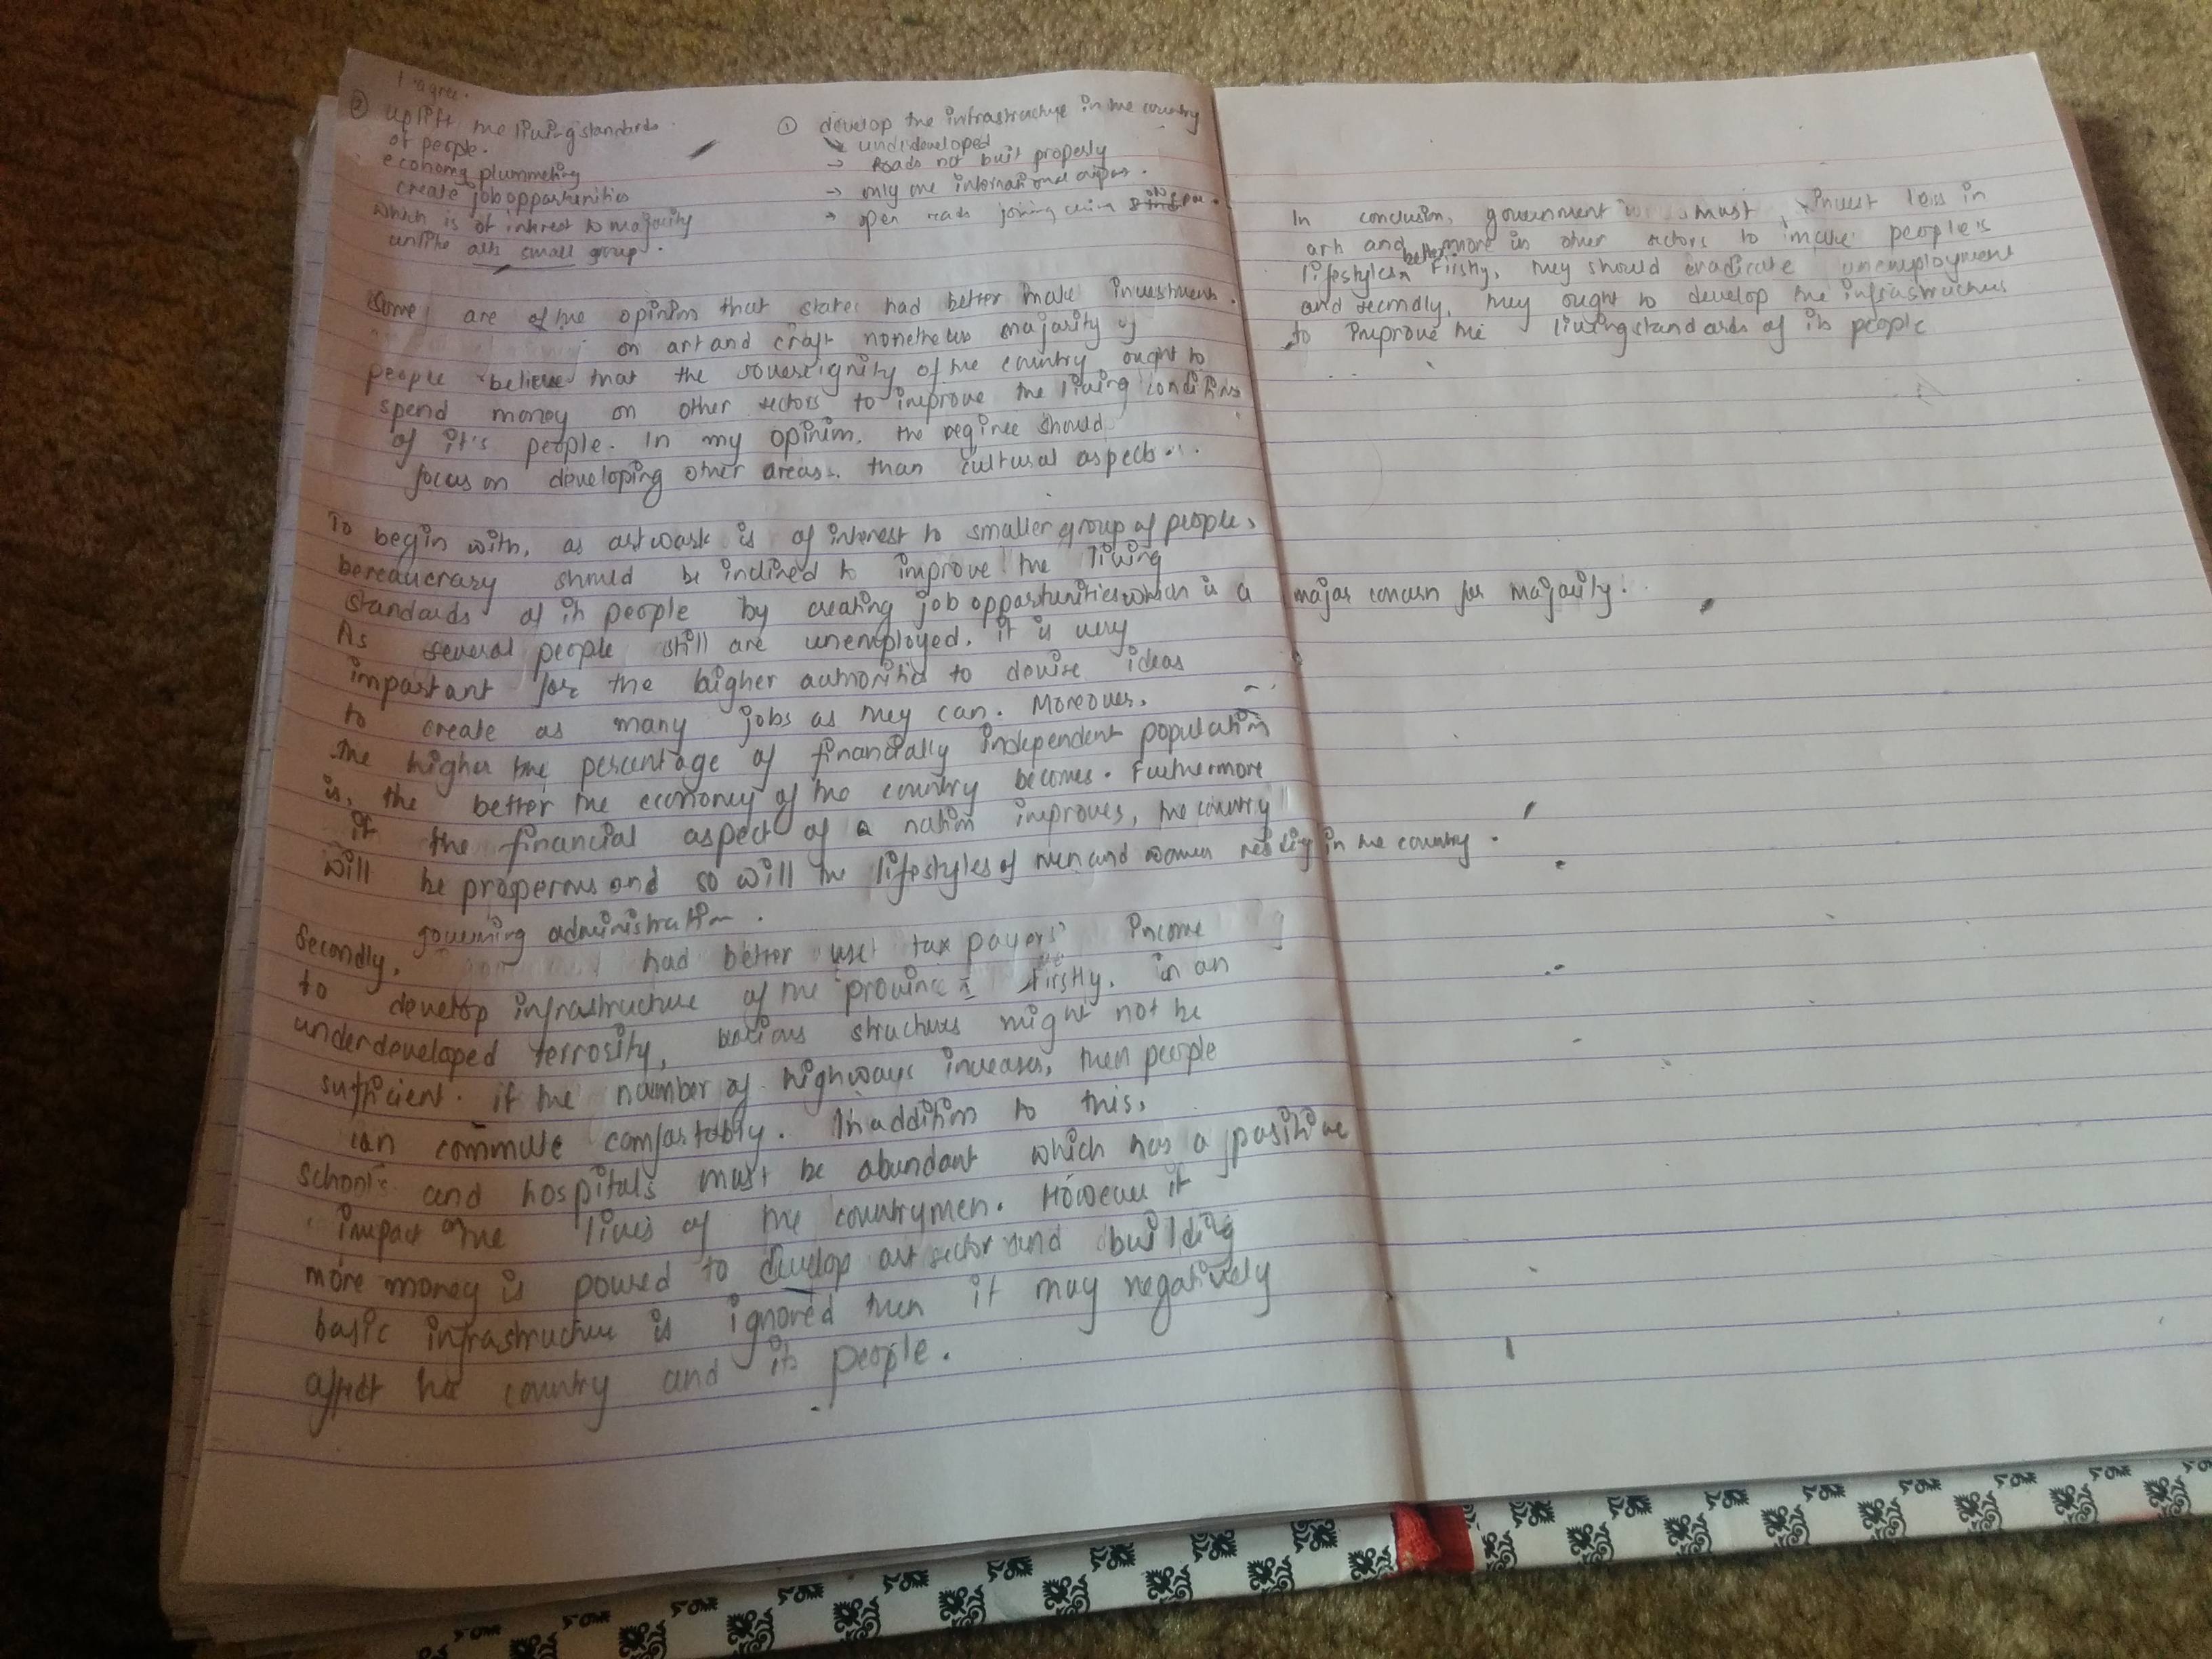 I agree.
② uplift the living standards
of people.
economy plummeting
create job opportunities
which is of interest to majority
unlike arts small group.
① develop the infrastructure in the country
→ underdeveloped
→ Roads not built properly
→ only one international airport.
→ open roads joining
Some are of the opinion that states had better make investment
on art and craft nonetheless majority of
people believe that the sovereignity of the country ought to
spend money on other sectors to improve the living conditions
of it's people. In my opinion, the reginee should
focus on developing other areas than cultural aspects.
To begin with, as artwork is of interest to smaller group of people,
bereaucrasy should be inclined to improve the living
standards of its people by creating job opportunities which is a major concern for majority.
As several people still are unemployed, it is very
important for the higher authorities to devise ideas
to create as many jobs as they can. Moreover,
the higher the percentage of financially independent population
is, the better the economy of the country becomes. Furthermore
if the financial aspect of a nation improves, the country
will be prosperous and so will the lifestyles of men and women residing in the country.
Secondly, governing administration had better use tax payers' income
to develop infrastructure of the province. Firstly, in an
underdeveloped terrosity, various structures might not be
sufficient. if the number of highways increases, then people
can commute comfortably. In addition to this,
schools and hospitals must be abundant which has a positive
impact on the lives of the countrymen. However if
more money is poured to develop art sector and building
basic infrastructure is ignored then it may negatively
affect the country and its people.
In conclusion, government must invest less in
arts and more in other sectors to make people's
lifestyles better. Firstly, they should eradicate unemployment
and secondly, they ought to develop the infrastructures
to improve the living standards of its people